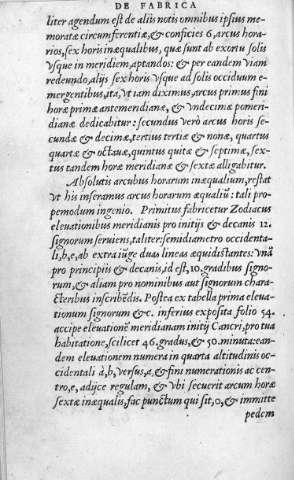 DE FABRICA
liter agendum est de alijs notis omnibus ipsius me-
moratæ circumferentiæ, & conficies 6, arcus hora-
rios, sex horis inæqualibus, quæ sunt ab exortu solis
vsque in meridiem, aptandos: & per eandem viam
redeundo, alijs sex horis vsque ad solis occiduum e-
mergentibus, ita, vt iam diximus, arcus primus fini
horæ primæ antemeridianæ, & vndecimæ pomeri-
dianæ dedicabitur: secundus verò arcus horis se-
cundæ & decimæ, tertius tertiæ & nonæ, quartus
quartæ & octauæ, quintus quītæ & septimæ, sex-
tus tandem horæ meridianæ & sextæ alligabitur.
Absolutis arcubus horarum inæqualium, restat
vt his inseramus arcus horarum æqualiū: tali pro-
pemodum ingenio. Primitus fabricetur Zodiacus
eleuationibus meridianis pro initijs & decanis 12.
signorum seruiens, taliter: semidiametro occidenta-
li, b, e, ab extra iūge duas lineas æquidistantes: vnā
pro principijs & decanis, id est, 10. gradibus signo-
rum, & aliam pro nominibus aut signorum chara-
cteribus inscribēdis. Postea ex tabella prima eleua-
tionum signorum &c. inferius exposita folio 54.
accipe eleuationē meridianam initij Cancri, pro tua
habitatione, scilicet 46. gradus, & 50. minuta: ean-
dem eleuationem numera in quarta altitudinis oc-
cidentali a, b, versus, a, & fini numerationis ac cen-
tro, e, adijce regulam, & vbi secuerit arcum horæ
sextæ inæqualis, fac punctum qui sit, o, & immitte
pedem